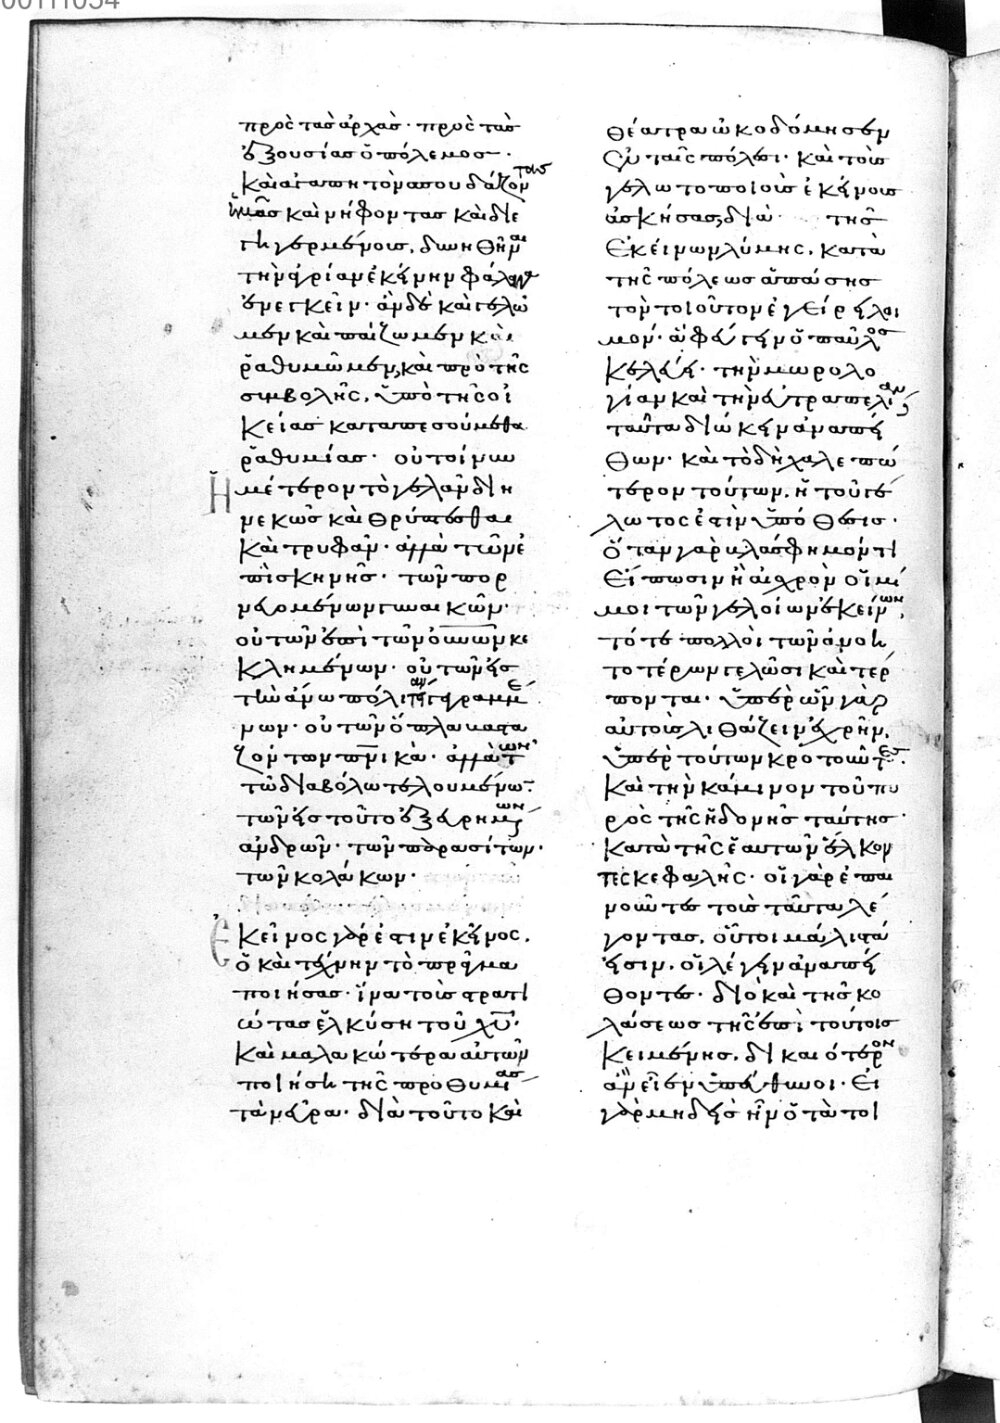 πρὸς τὰς ἀρχὰς· πρὸς τὰς
ἐξουσίας ὁ πόλεμος·
καὶ ἀγαπητὸν σπουδάζοντας
ἡμᾶς καὶ νήφοντας καὶ διε
γηγερμένους, δυνηθῆναι
τὴν ἀγρίαν ἐκείνην φάλαγγα
ἐνεγκεῖν· ἂν δὲ καὶ γελῶ
μεν καὶ παίζωμεν καὶ
ῥαθυμῶμεν, καὶ πρὸ τῆς
συμβολῆς, ὑπὸ τῆς οἰ
κείας καταπεσούμεθα
ῥαθυμίας· οὐ τοίνυν
ἡμέτερον τὸ γελᾶν διη
νεκῶς καὶ θρύπτεσθαι
καὶ τρυφᾶν· ἀλλὰ τῶν ἐ
πὶ σκηνῆς· τῶν πορ
νευομένων γυναικῶν·
οὐ τῶν ἐπὶ τῶν οὐνῶν κε
κλημένων· οὐ τῶν εἰς
τὴν ἄνω πόλιν ἐγγεγραμμέ
νων· οὐ τῶν ὅπλα βαστα
ζόντων πνικά· ἀλλὰ τῶν
τῷ διαβόλῳ τελουμένων·
τῶν εἰς τοῦτο ἐξευρημένων
ἀνδρῶν· τῶν παρασίτων·
τῶν κολάκων·
Ἐκεῖνος γάρ ἐστιν ἐκεῖνος,
ὁ καὶ τέχνην τὸ πρᾶγμα
ποιήσας· ἵνα τοὺς στρατι
ώτας ἑλκύσῃ τοῦ χυ·
καὶ μαλακώτερα αὐτῶν
ποιήσῃ τῆς προθυμίας
τὰ νεῦρα· διὰ τοῦτο καὶ
θέατρα ὠκοδόμησεν
ἐν ταῖς πόλεσι· καὶ τοὺς
γελωτοποιοὺς ἐκείνους
ἀσκήσας, διὰ τῆς
ἐκείνων λύμης, κατὰ
τῆς πόλεως ἁπάσης
τὸν τοιοῦτον ἐγείρει λοι
μόν· ἃ φεύγειν ὁ παῦλος
κελεύει· τὴν μωρολο
γίαν καὶ τὴν εὐτραπελίαν,
ταῦτα διώκειν ἀναπεί
θων· καὶ τὸ δὴ χαλεπώ
τερον τούτων, ἡ τοῦ γέ
λωτος ἐστὶν ὑπόθεσις·
ὅταν γὰρ βλάσφημόν τι
εἴπωσιν ἢ αἰσχρὸν οἱ μῖ
μοι τῶν γελοίων ἐκείνων,
τότε πολλοὶ τῶν ἀνοη
τοτέρων γελῶσι καὶ τέρ
πονται· ὑπὲρ ὧν γὰρ
αὐτοὺς λιθάζειν ἐχρῆν,
ὑπὲρ τούτων κροτοῦντες·
καὶ τὴν κάμινον τοῦ πυ
ρὸς τῆς ἡδονῆς ταύτης
κατὰ τῆς ἑαυτῶν ἕλκον
τες κεφαλῆς· οἱ γὰρ ἐπαι
νοῦντες τοὺς ταῦτα λέ
γοντας, οὗτοι μάλιστά
εἰσιν, οἱ λέγειν ἀναπεί
θοντες· διὸ καὶ τῆς κο
λάσεως τῆς ἐπὶ τούτοις
κειμένης, δικαιότερον
ἂν εἶεν ὑπεύθυνοι· εἰ
γὰρ μηδεὶς ἦν ὁ τὰ τοι